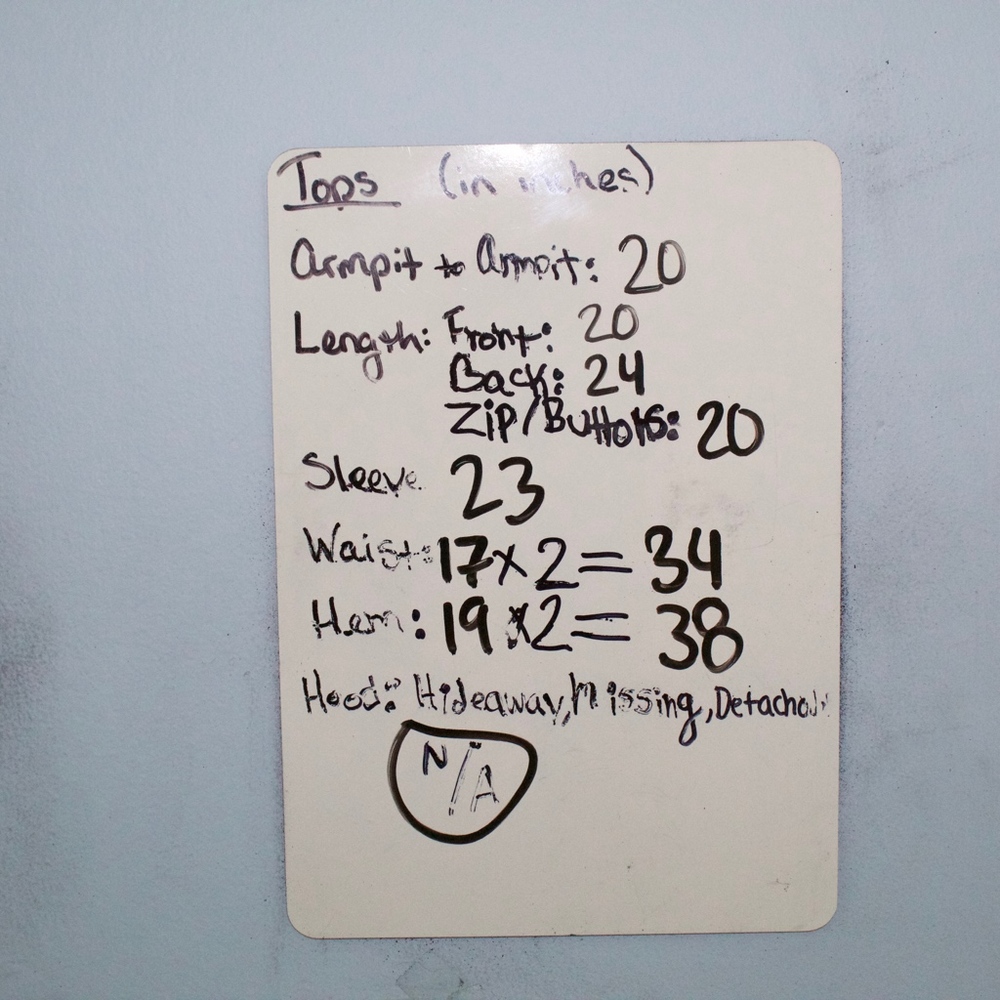 Tops (in inches)
Armpit to Armpit: 20
Length: Front: 20
Back: 24
Zip/Buttons: 20
Sleeve 23
Waist: 17 x 2 = 34
Hem: 19 x 2 = 38
Hood: Hideaway, Missing,
N/A